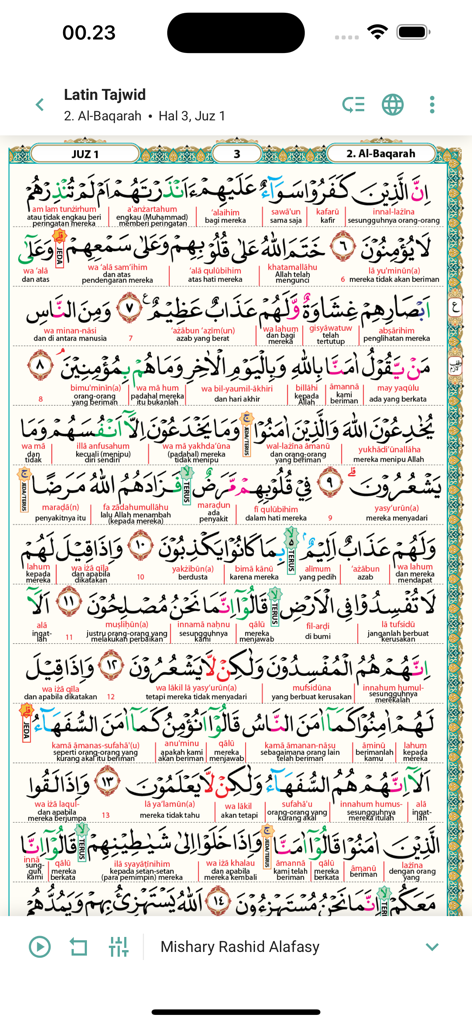 00.23
Latin Tajwid
2. Al-Baqarah • Hal 3, Juz 1
JUZ 1
3
2. Al-Baqarah
اِنَّ الَّذِيْنَ كَفَرُوْا سَوَاۤءٌ عَلَيْهِمْ ءَاَنْذَرْتَهُمْ اَمْ لَمْ تُنْذِرْهُمْ
innal-lażīna kafarū sawā'un 'alaihim a'anżartahum am lam tunżirhum
sesungguhnya orang-orang kafir sama saja bagi mereka engkau (Muhammad) memberi peringatan atau tidak engkau beri peringatan mereka
لَا يُؤْمِنُوْنَ ٦ خَتَمَ اللّٰهُ عَلٰى قُلُوْبِهِمْ وَعَلٰى سَمْعِهِمْ ۗ JEDA وَعَلٰٓى
lā yu'minūn(a) 6 khatamallāhu 'alā qulūbihim wa 'alā sam'ihim wa 'alā
mereka tidak akan beriman Allah telah mengunci atas hati mereka dan atas pendengaran mereka dan atas
اَبْصَارِهِمْ غِشَاوَةٌ وَّلَهُمْ عَذَابٌ عَظِيْمٌ ࣖ ٧ وَمِنَ النَّاسِ
abṣārihim gisyāwatuw wa lahum 'ażābun 'aẓīm(un) 7 wa minan-nāsi
penglihatan mereka telah tertutup dan bagi mereka azab yang berat dan di antara manusia
مَنْ يَّقُوْلُ اٰمَنَّا بِاللّٰهِ وَبِالْيَوْمِ الْاٰخِرِ وَمَا هُمْ بِمُؤْمِنِيْنَ ۘ ٨
may yaqūlu āmannā billāhi wa bil-yaumil-ākhiri wa mā hum bimu'minīn(a) 8
ada yang berkata kami beriman kepada Allah dan hari akhir padahal mereka itu bukanlah orang-orang yang beriman
يُخٰدِعُوْنَ اللّٰهَ وَالَّذِيْنَ اٰمَنُوْا ۚ JEDA/TERUS وَمَا يَخْدَعُوْنَ اِلَّآ اَنْفُسَهُمْ وَمَا
yukhādi'ūnallāha wal-lażīna āmanū wa mā yakhda'ūna illā anfusahum wa mā
mereka menipu Allah dan orang-orang yang beriman (padahal) mereka tidak menipu kecuali (menipu) diri sendiri dan tidak
يَشْعُرُوْنَ ۗ ٩ فِيْ قُلُوْبِهِمْ مَّرَضٌ ۙ TERUS فَزَادَهُمُ اللّٰهُ مَرَضًا ۚ JEDA/TERUS
yasy'urūn(a) 9 fī qulūbihim maraḍun fa zādahumullāhu maraḍā(n)
mereka menyadari dalam hati mereka ada penyakit lalu Allah menambah (kepada mereka) penyakitnya itu
وَلَهُمْ عَذَابٌ اَلِيْمٌ ۢ ۙ TERUS بِمَا كَانُوْا يَكْذِبُوْنَ ١٠ وَاِذَا قِيْلَ لَهُمْ
wa lahum 'ażābun alīmum bimā kānū yakżibūn(a) 10 wa iżā qīla lahum
dan mereka mendapat azab yang pedih karena mereka berdusta dan apabila dikatakan kepada mereka
لَا تُفْسِدُوْا فِى الْاَرْضِ ۙ TERUS قَالُوْٓا اِنَّمَا نَحْنُ مُصْلِحُوْنَ ١١ اَلَآ
lā tufsidū fil-arḍi qālū innamā naḥnu muṣliḥūn(a) 11 alā
janganlah berbuat kerusakan di bumi mereka menjawab sesungguhnya kami justru orang-orang yang melakukan perbaikan ingat-lah
اِنَّهُمْ هُمُ الْمُفْسِدُوْنَ وَلٰكِنْ لَّا يَشْعُرُوْنَ ١٢ وَاِذَا قِيْلَ
innahum humul- mufsidūna wa lākil lā yasy'urūn(a) 12 wa iżā qīla
sesungguhnya merekalah yang berbuat kerusakan tetapi mereka tidak menyadari dan apabila dikatakan
لَهُمْ اٰمِنُوْا كَمَآ اٰمَنَ النَّاسُ قَالُوْٓا اَنُؤْمِنُ كَمَآ اٰمَنَ السُّفَهَاۤءُ ۗ JEDA
lahum āminū kamā āmanan-nāsu qālū anu'minu kamā āmanas-sufahā'(u)
kepada mereka berimanlah kamu sebagaimana orang lain telah beriman mereka menjawab apakah kami akan beriman seperti orang-orang yang kurang akal itu beriman
اَلَآ اِنَّهُمْ هُمُ السُّفَهَاۤءُ وَلٰكِنْ لَّا يَعْلَمُوْنَ ١٣ وَاِذَا لَقُوا
alā innahum humus- sufahā'u wa lākil lā ya'lamūn(a) 13 wa iżā laqul-
ingat-lah sesungguhnya mereka itulah orang-orang yang kurang akal akan tetapi mereka tidak tahu dan apabila mereka berjumpa
الَّذِيْنَ اٰمَنُوْا قَالُوْٓا اٰمَنَّا ۚ JEDA/TERUS وَاِذَا خَلَوْا اِلٰى شَيٰطِيْنِهِمْ ۙ TERUS قَالُوْٓا اِنَّا
lażīna āmanū qālū āmannā wa iżā khalau ilā syayāṭīnihim qālū innā
dengan orang yang beriman mereka berkata kami telah beriman dan apabila mereka kembali kepada setan-setan (para pemimpin) mereka mereka berkata sung-guh kami
مَعَكُمْ ۙ TERUS اِنَّمَا نَحْنُ مُسْتَهْزِءُوْنَ ١٤ اَللّٰهُ يَسْتَهْزِئُ بِهِمْ وَيَمُدُّهُمْ
Mishary Rashid Alafasy